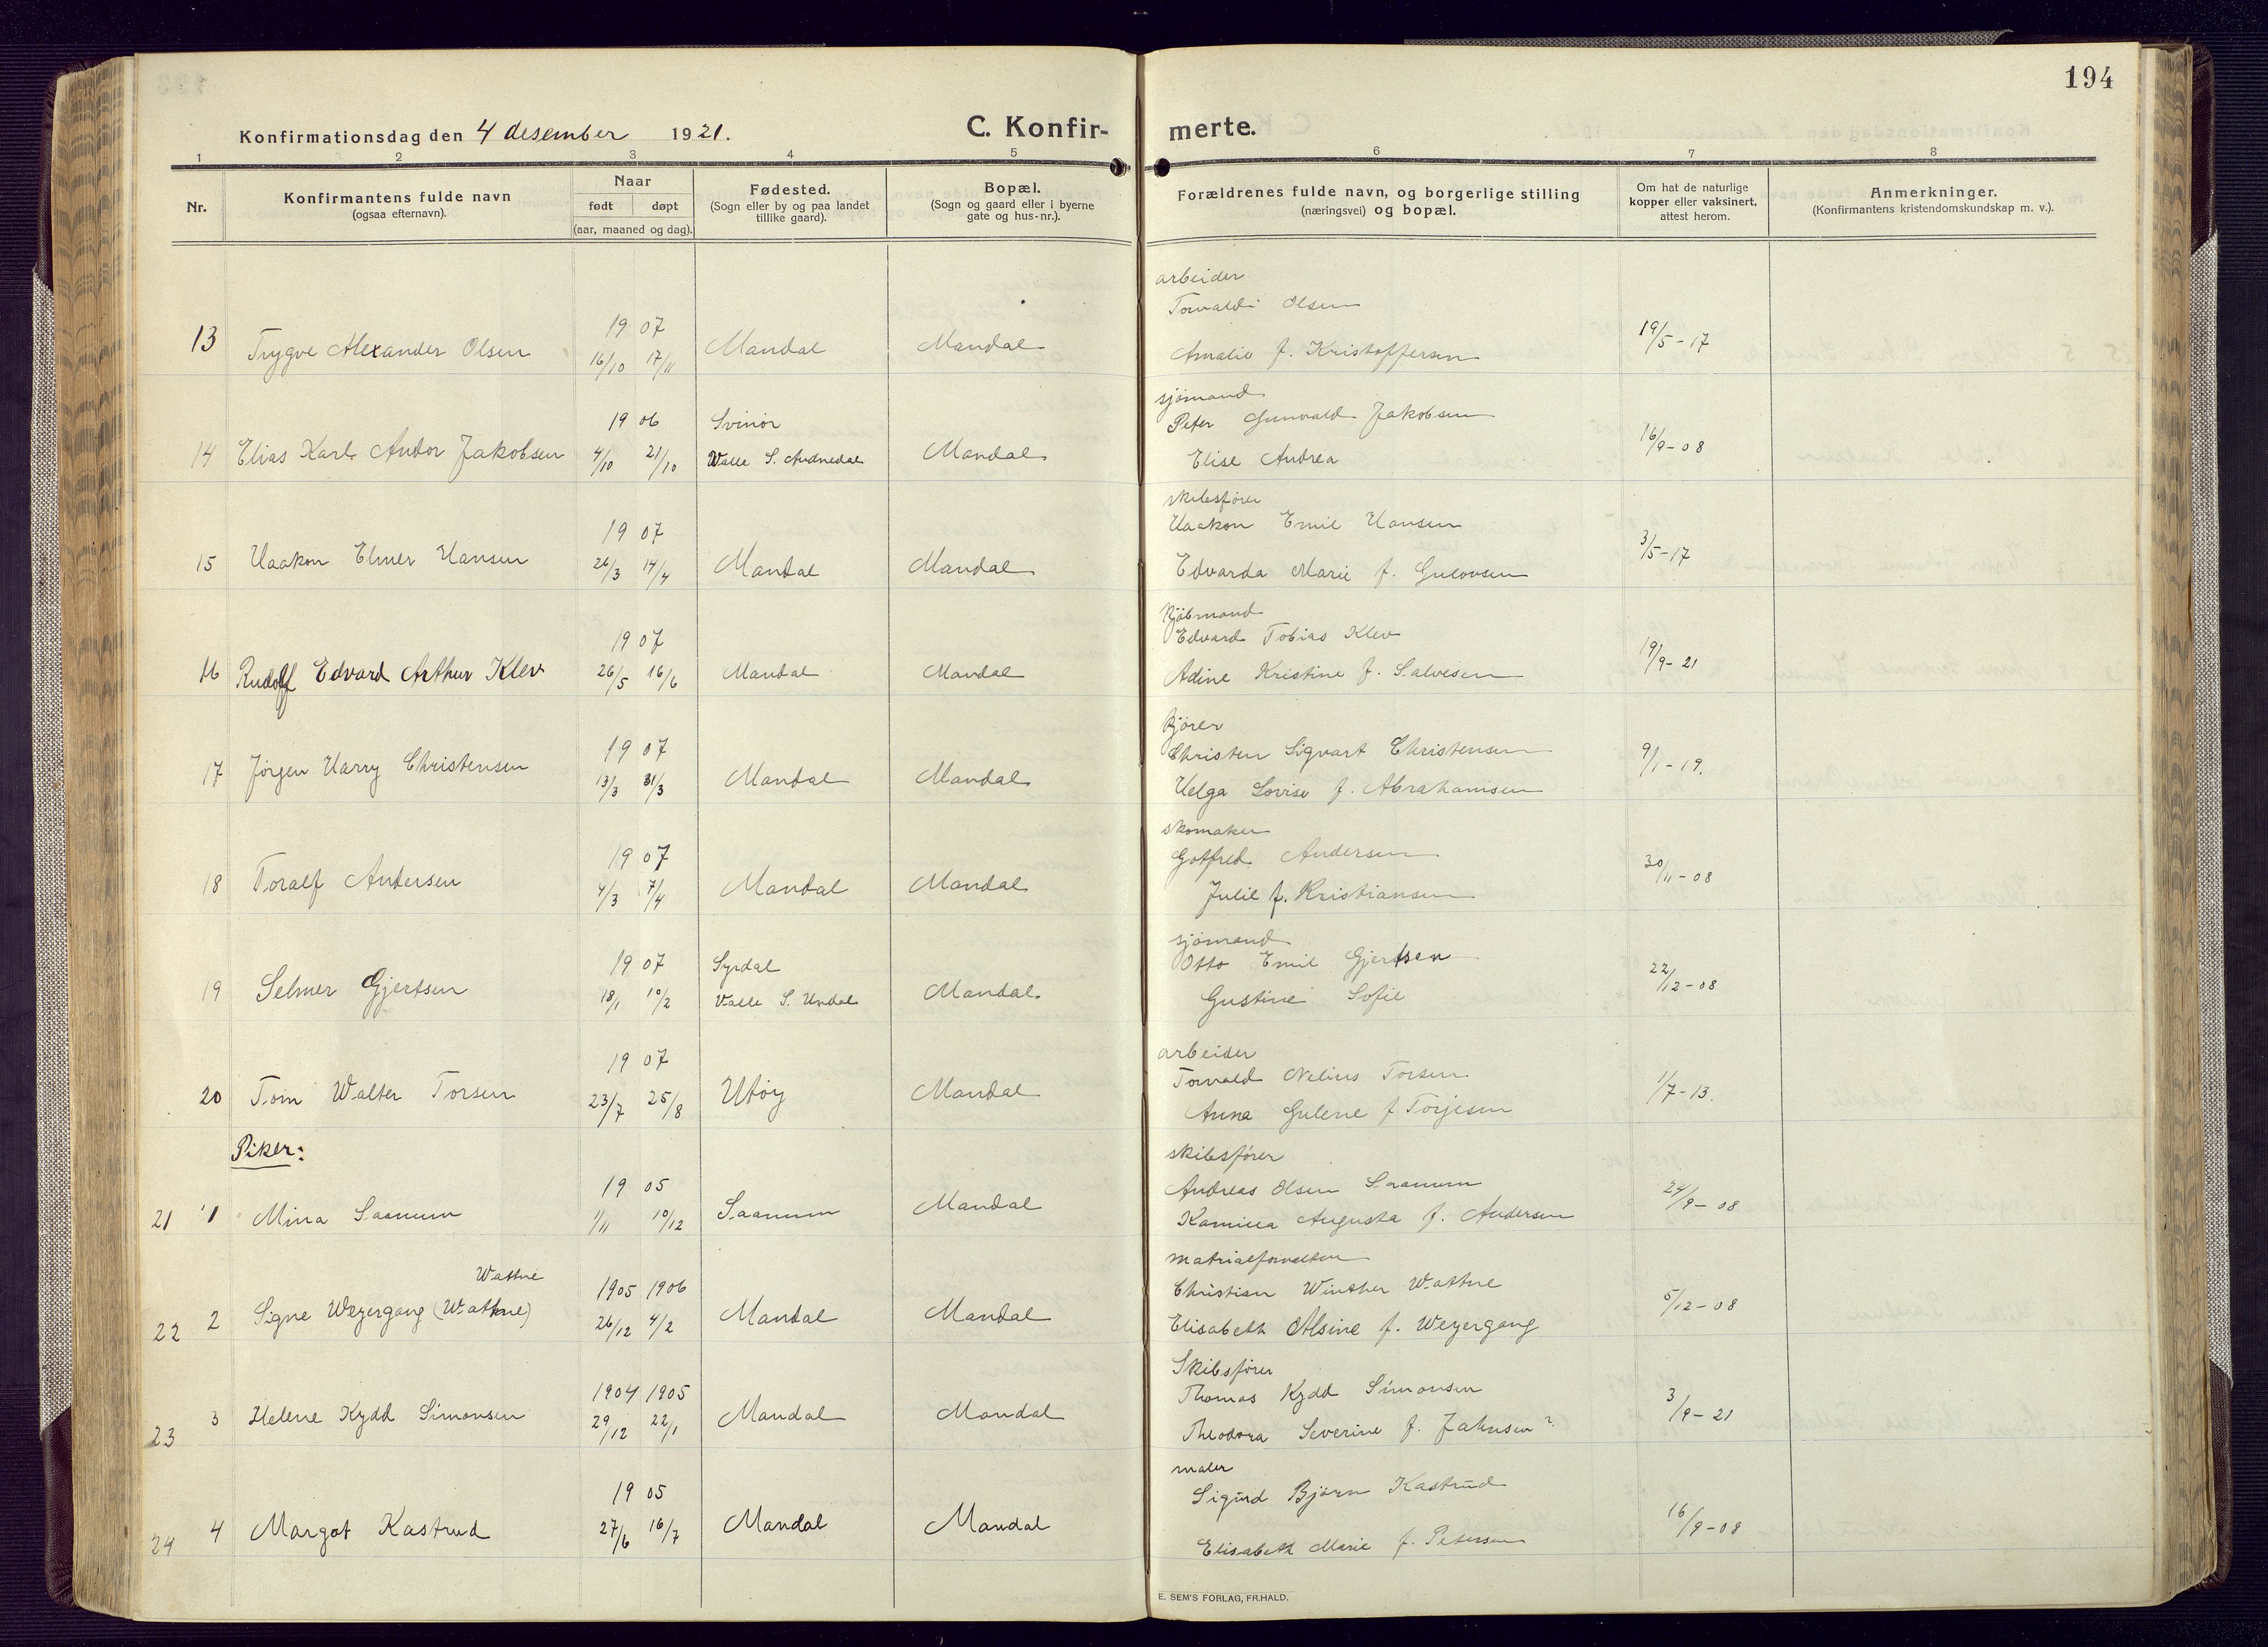 194
Konfirmationsdag den 4 desember 1921.
C. Konfir-
merte.
1 2 3 4 5 6 7 8
Nr.
Konfirmantens fulde navn
(ogsaa efternavn).
Naar
født døpt
(aar, maaned og dag).
Fødested.
(Sogn eller by og paa landet
tillike gaard).
Bopæl.
(Sogn og gaard eller i byerne
gate og hus-nr.).
Forældrenes fulde navn, og borgerlige stilling
(næringsvei) og bopæl.
Om hat de naturlige
kopper eller vaksinert,
attest herom.
Anmerkninger.
(Konfirmantens kristendomskundskap m. v.).
arbeider
19 07 Torvald Olsen
13 Trygve Alexander Olsen 16/10 17/11 Mandal Mandal Amalie f. Kristoffersen 19/5-17
sjømand
19 06 Svinør Peter Gunvald Jakobsen
14 Elias Karl Andor Jakobsen 4/10 21/10 Valle S. Audnedal Mandal Elise Andrea 16/9-08
skibsfører
19 07 Haakon Emil Hansen
15 Haakon Elmer Hansen 26/3 14/4 Mandal Mandal Edvarda Marie f. Gulovsen 3/5-17
Kjøbmand
19 07 Edvard Tobias Klev
16 Rudolf Edvard Arthur Klev 26/5 16/6 Mandal Mandal Adine Kristine f. Salvesen 19/9-21
Kjører
19 07 Christen Sigvart Christensen
17 Jørgen Harry Christensen 13/3 31/3 Mandal Mandal Helga Lovise f. Abrahamsen 9/1-19.
skomaker
19 07 Gotfred Andersen
18 Toralf Andersen 4/3 7/4 Mandal Mandal Julie f. Kristiansen 30/11-08
sjømand
19 07 Syrdal Otto Emil Gjertsen
19 Selmer Gjertsen 18/1 10/2 Valle S. Undal Mandal. Gustine Sofie 22/12-08
arbeider
19 07 Torvald Nelius Torsen
20 Tom Walter Torsen 23/7 25/8 Utøy Mandal Anna Gulene f Torjesen 1/7-13.
Piker:
skibsfører
19 05 Andreas Olsen Saanum
21 1 Mina Saanum 1/11 10/12 Saanum Mandal Kamilla Augusta f. Andersen 24/9-08
matrialforvalter
Wattne 1905 1906 Christian Winther Wattne
22 2 Signe Weyergang (Wattne) 26/12 4/2 Mandal Mandal Elisabeth Alsine f. Weyergang 5/12-08
Skibsfører
1904 1905 Thomas Kydd Simonsen
23 3 Helene Kydd Simonsen 29/12 22/1 Mandal Mandal Theodora Severine f. Jahnsen? 3/9-21
maler
19 05 Sigurd Bjørn Kastrud
24 4 Margot Kastrud 27/6 16/7 Mandal Mandal Elisabeth Marie f. Petersen 16/9-08
E. SEM'S FORLAG, FR.HALD.